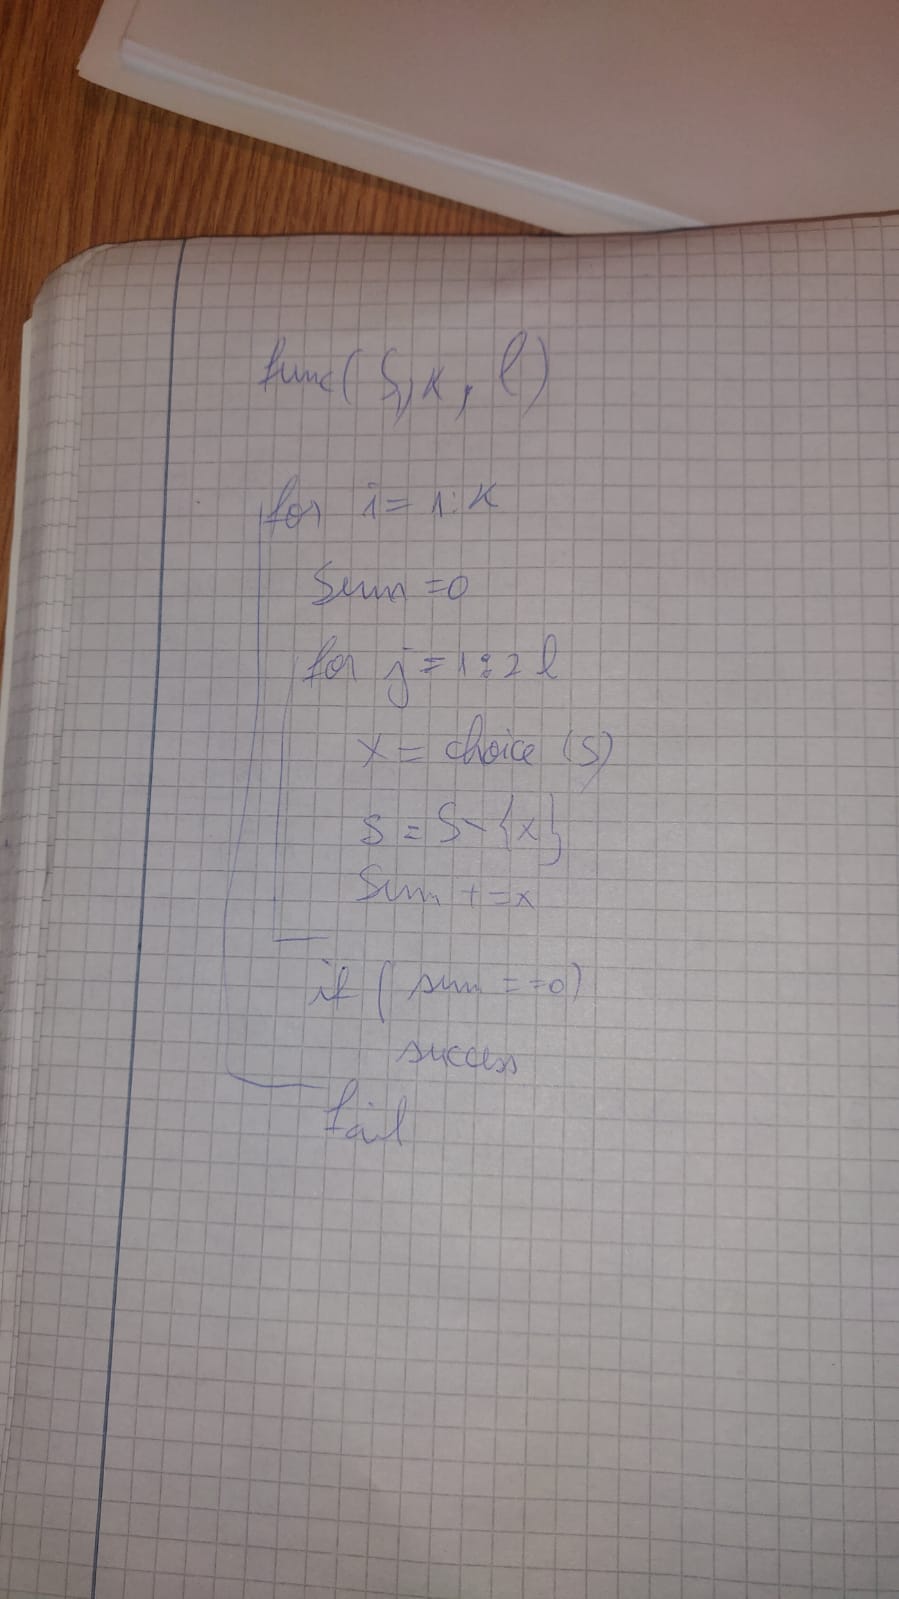 func(S, k, l)
for i = 1:k
Sum = 0
for j = 1:2l
x = choice (S)
S = S - {x}
Sum += x
if (sum == 0)
success
fail